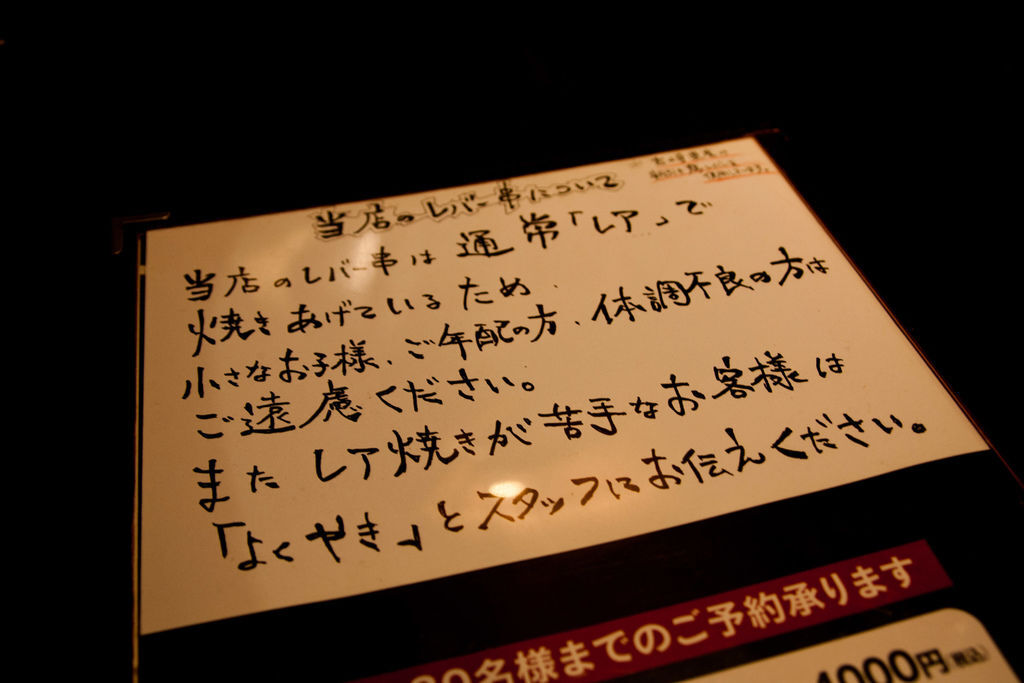 当店のレバー串について
当店のレバー串は通常「レア」で
焼きあげているため、
小さなお子様、ご年配の方、体調不良の方は
ご遠慮ください。
また レア焼きが苦手なお客様は
「よくやき」とスタッフにお伝えください。
0名様までのご予約承ります
4000円(税込)